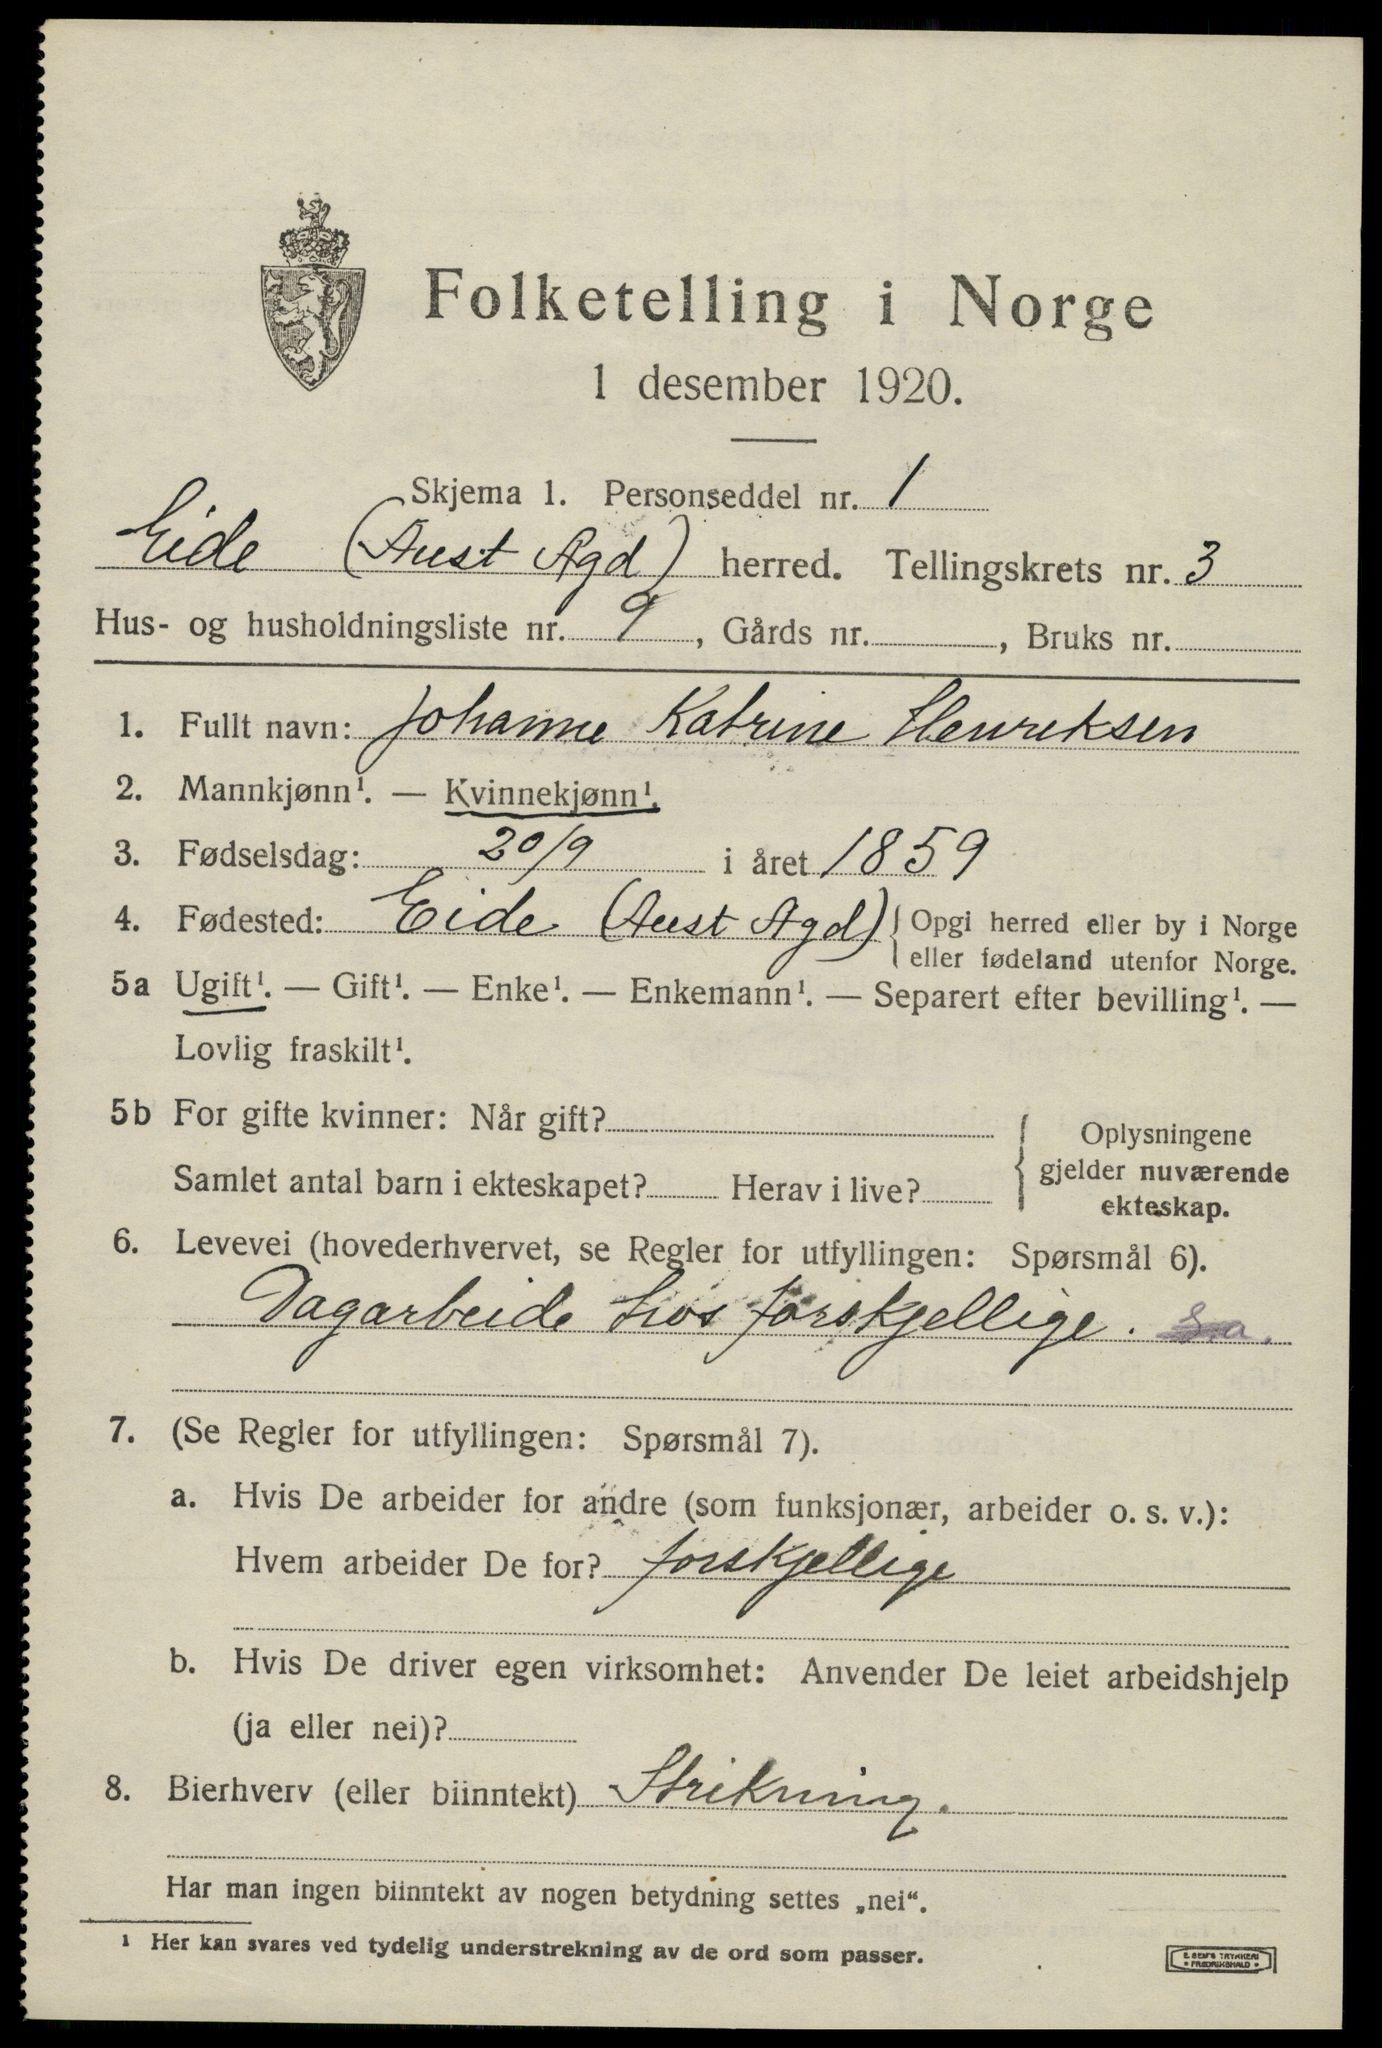 Folketelling i Norge
1 desember 1920.
Skjema 1. Personseddel nr. 1
Eide (Aust Agd) herred. Tellingskrets nr. 3
Hus- og husholdningsliste nr. 9, Gårds nr. , Bruks nr.
1. Fullt navn: Johanne Katrine Henriksen
2. Mannkjønn¹. — Kvinnekjønn¹.
3. Fødselsdag: 20/9 i året 1859
4. Fødested: Eide (Aust Agd) { Opgi herred eller by i Norge
eller fødeland utenfor Norge.
5a Ugift¹. — Gift¹. — Enke¹. — Enkemann¹. — Separert efter bevilling¹. —
Lovlig fraskilt¹.
5b For gifte kvinner: Når gift?
Samlet antal barn i ekteskapet? Herav i live?
Oplysningene
gjelder nuværende
ekteskap.
6. Levevei (hovederhvervet, se Regler for utfyllingen: Spørsmål 6).
Dagarbeide hos forskjellige.
7. (Se Regler for utfyllingen: Spørsmål 7).
a. Hvis De arbeider for andre (som funksjonær, arbeider o. s. v.):
Hvem arbeider De for? forskjellige
b. Hvis De driver egen virksomhet: Anvender De leiet arbeidshjelp
(ja eller nei)?
8. Bierhverv (eller biinntekt) Strikning.
Har man ingen biinntekt av nogen betydning settes „nei“.
¹ Her kan svares ved tydelig understrekning av de ord som passer.
E. SEM'S TRYKKERI
• FREDRIKSHALD •